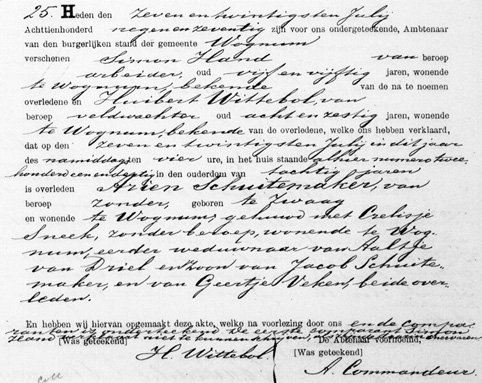 25. Heden den zeven en twintigsten Julij
Achttienhonderd negen en zeventig zijn voor ons ondergeteekende, Ambtenaar
van den burgerlijken stand der gemeente Wognum
verschenen Simon Hand van beroep
arbeider, oud vijf en vijftig jaren, wonende
te Wognum, bekende van de na te noemen
overledene en Huibert Wittebol, van
beroep veldwachter oud acht en zestig jaren, wonende
te Wognum, bekende van de overledene, welke ons hebben verklaard,
dat op den zeven en twintigsten Julij in dit jaar
des namiddags ten vier ure, in het huis staande alhier numero twee
honderd een en dertig in den ouderdom van tachtig jaren
is overleden Arien Schuitemaker, van
beroep zonder, geboren te Zwaag
en wonende te Wognum, gehuwd met Crelisje
Sneek, zonder beroep, wonende te Wog-
num, eerder weduwnaar van Aaltje
van Driel en zoon van Jacob Schuite-
maker, en van Geertje Veken, beide over-
leden.
En hebben wij hiervan opgemaakt deze akte, welke na voorlezing door ons en de compa-
ranten is onderteekend de eerste comparant Simon
Hand verklaart niet te kunnen
[Was geteekend] De Abtenaar voornoemd,
H. Wittebol [Was geteekend]
A. Commandeur.